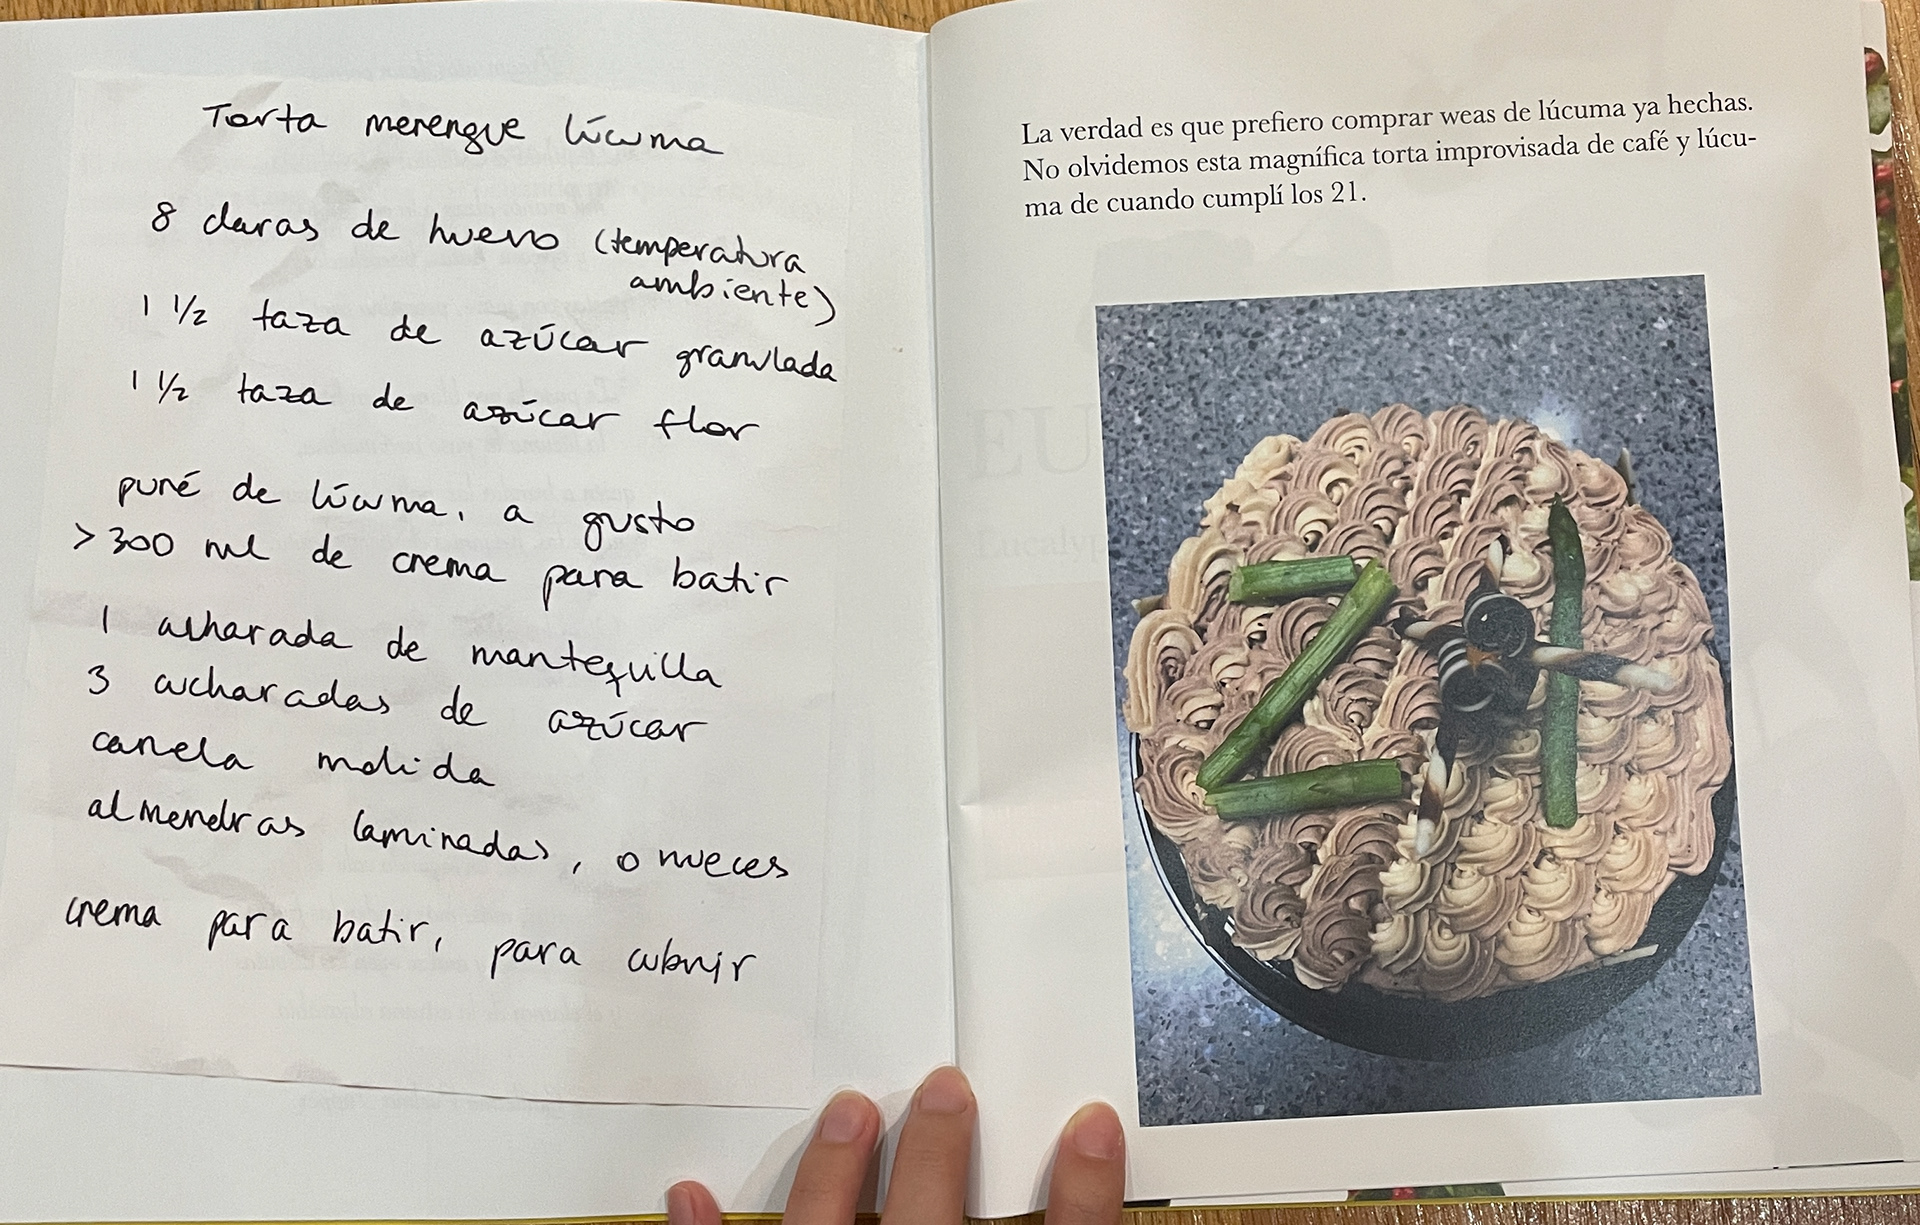 Torta merengue lúcuma
8 claras de huevo (temperatura
ambiente)
1 1/2 taza de azúcar granulada
1 1/2 taza de azúcar flor
puré de lúcuma, a gusto
>300 ml de crema para batir
1 cucharada de mantequilla
3 cucharadas de azúcar
canela molida
almendras laminadas, o nueces
crema para batir, para cubrir
La verdad es que prefiero comprar weas de lúcuma ya hechas.
No olvidemos esta magnífica torta improvisada de café y lúcu-
ma de cuando cumplí los 21.
21